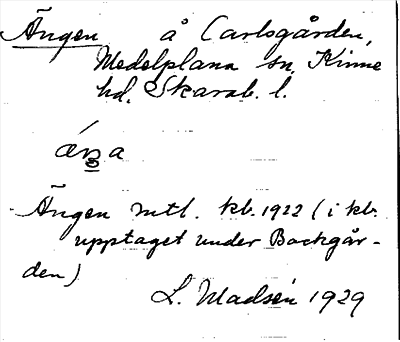 Ängen å Carlsgården,
Medelplana sn, Kinne
hd. Skarab. l.
Ängen mtl. kb. 1922 (i kb.
upptaget under Backgår-
den)
L. Madsén 1929